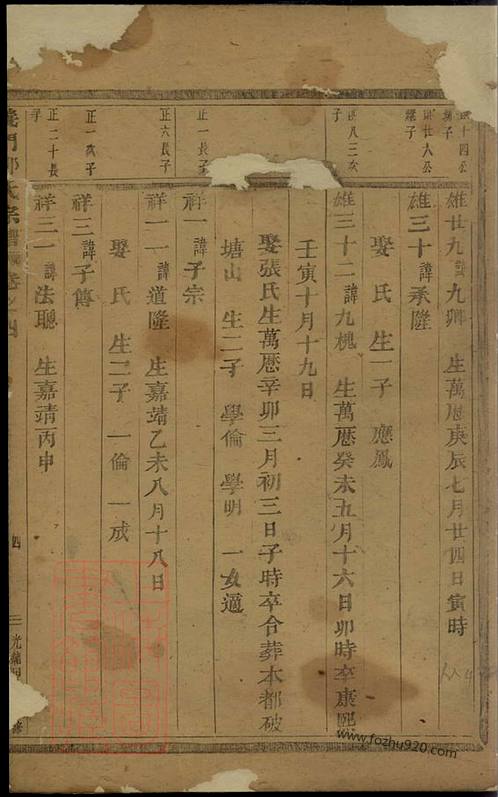 雄廿九諱九卿　生萬曆庚辰七月廿四日寅時
雄三十諱承隆
娶　氏　生一子　應鳳
雄三十二諱九槐　生萬曆癸未五月十六日卯時卒康熙
壬寅十月十九日
娶張氏生萬曆辛卯三月初三日子時卒合葬本都破
塘山　生二子　學倫　學明　一女適
正一長子
祥一諱子宗
正六長子
祥一一諱道隆　生嘉靖乙未八月十八日
娶　氏　生二子　一倫　一成
正一次子
祥三諱子傳
正二十長子
祥三一諱法聰　生嘉靖丙申
四
www.fozhu920.com